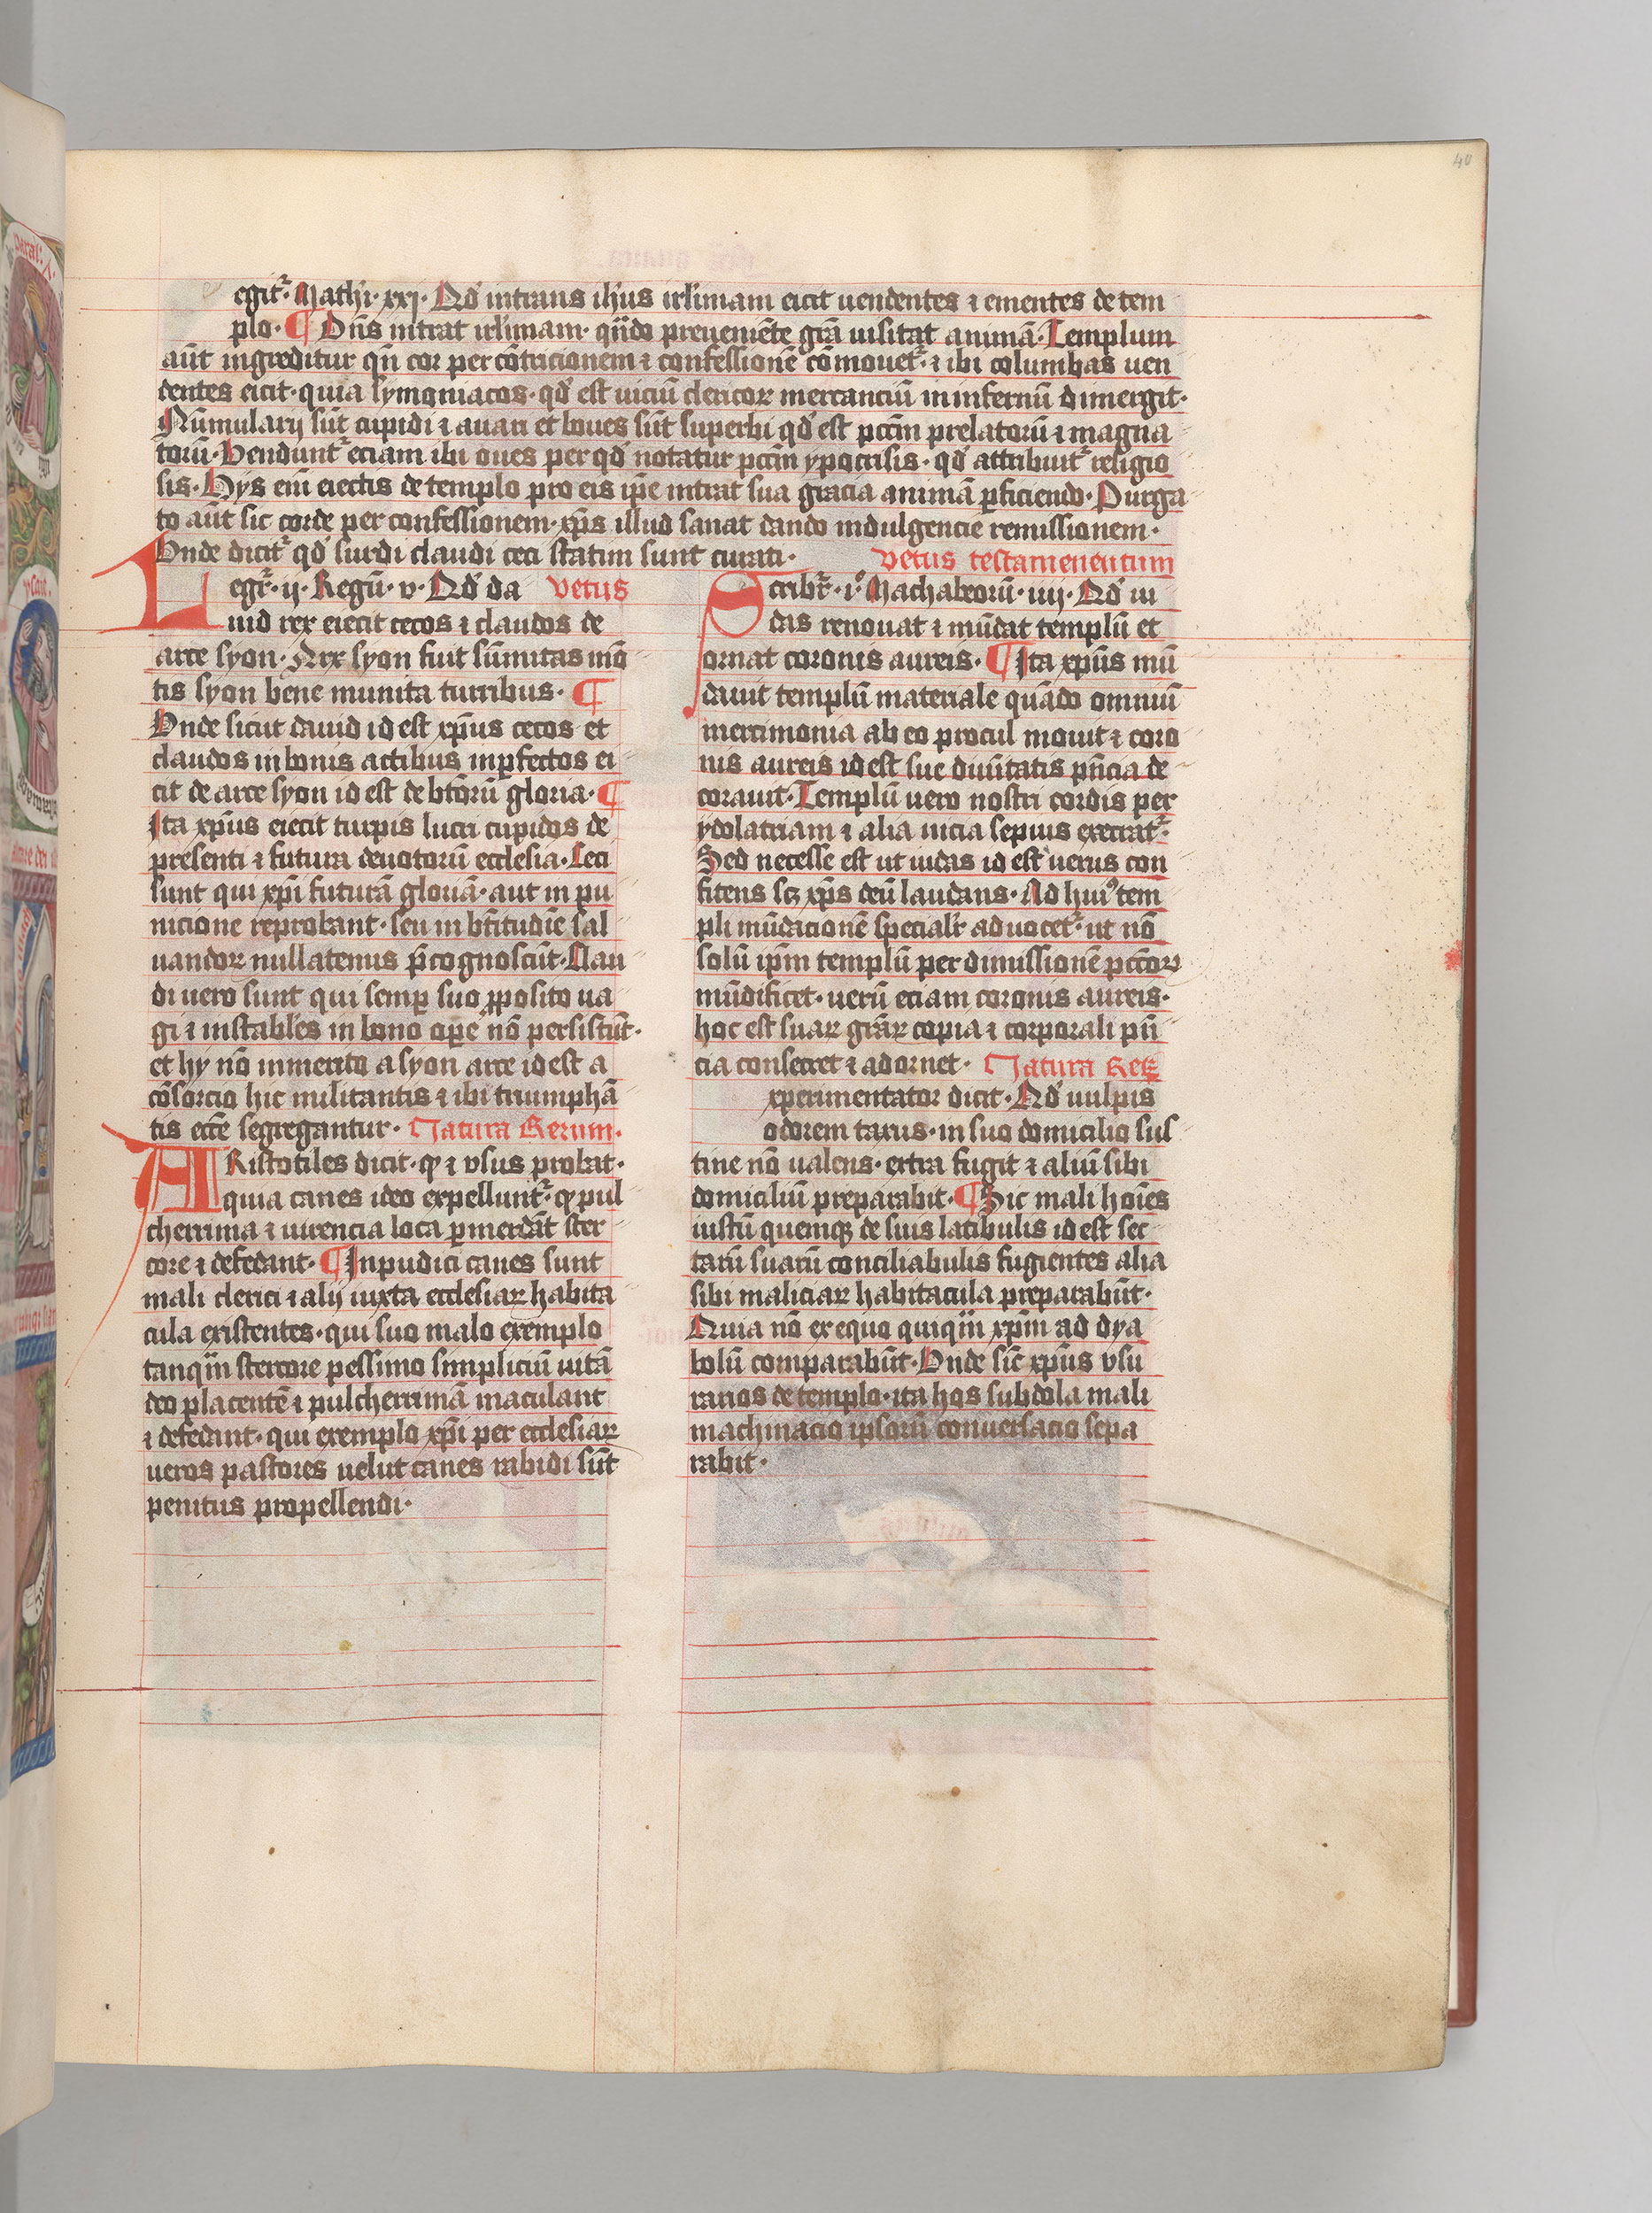 40
egit᷑· Mathi· xxj· Qd' intrans ih'us irl'imam eicit uendentes ⁊ ementes de tem
plo· ¶ Dn̄s intrat irl'imam· qn̄do preueniēte gr̄a uisitat animā· Templum
aūt ingreditur qn̄ cor per cōtricionem ⁊ confessionē cōmouet᷑· ⁊ ibi columbas uen
dentes eicit· quia symoniacos· qd' est uiciū clericoꝝ mercanciū in infernū dimergit·
Nūmularij sūt cupidi ⁊ auari et boues sūt superbi qd' est pccm̄ prelatorū ⁊ magna
torū· Vendunt᷑ eciam ibi oues per qd' notatur pccm̄ ypocrisis· qd' attribuit᷑ religio
sis· Hys em̄ eiectis de templo pro eis ip̄e intrat sua gracia animā ꝑficiendo· Purga
to aūt sic corde per confessionem· xp̄s illud sanat dando indulgencie remissionem·
Vnde dicit᷑ qd' surdi claudi ceci statim sunt curati·
Legit᷑· ij· Regū· v· Qd' da vetus
uid rex eiecit cecos ⁊ claudos de
arce syon· Arx syon fuit sūmitas mō
tis syon bene munita turribus· ¶
Vnde sicut dauid id est xp̄us cecos et
claudos in bonis actibus inꝑfectos ei
cit de arce syon id est de btōrū gloria· ¶
Ita xp̄us eiecit turpis lucri cupidos de
presenti ⁊ futura deuotorū ecclesia· Ceci
sunt qui xp̄i futurā gloriā· aut in pu
nicione reprobant· seu in bt̄itudīe sal
uandoꝝ nullatenus p̄cognoscūt· Clau
di uero sunt qui semꝑ suo ꝓposito ua
gi ⁊ instabl'es in bono oꝑe nō persistūt·
et hy nō inmerito a syon arce id est a
cōsorcio hic militantis ⁊ ibi triumphā
tis ecc̄e segregantur· Natura Rerum·
ARistotiles dicit· ꝙ ⁊ vsus probat·
quia canes ideo expellunt᷑· ꝙ pul
cherrima ⁊ uirencia loca ꝑmerdāt ster
core ⁊ defedant· ¶ Inpudici canes sunt
mali clerici ⁊ alij iuxta ecclesiaꝝ habita
cula existentes· qui suo malo exemplo
tanqm̄ stercore pessimo simpliciū uitā
deo placentē ⁊ pulcherrimā maculant
⁊ defedant· qui exemplo xp̄i per ecclesiaꝝ
ueros pastores uelut canes rabidi sūt
penitus propellendi·
vetus testamenentum
Scribit᷑· i᷑· Machabeorū· iiij· Qd' iu
das renouat ⁊ mūdat templū et
ornat coronis aureis· ¶ Ita xp̄us mū
dauit templū materiale quādo omniū
mercimonia ab eo procul mouit ⁊ coro
nis aureis id est sue diuītatis pn̄cia de
corauit· Templū uero nostri cordis per
ydolatriam ⁊ alia uicia sepius execrat᷑·
Sed necesse est ut iudas id est uerus con
fitens sꝫ xp̄s deū laudans· Ad huiꝰ tem
pli mūdacionē specialr̄ aduocet᷑· ut nō
solū ip̄m templū per dimissionē pccōꝝ
mūdificet· uerū eciam coronis aureis·
hoc est suaꝝ gr̄aꝝ copia ⁊ corporali pn̄
cia consecret ⁊ adornet· Natura Reꝝ
xperimentator dicit· Qd' uulpis
odorem taxus· in suo domicilio sus
tine nō ualens· extra fugit ⁊ aliū sibi
domiciliū preparabit· ¶ Sic mali hoīes
iustū quemqꝫ de suis latibulis id est sec
tarū suarū conciliabulis fugientes alia
sibi maliciaꝝ habitacula preparabūt·
Quia nō ex equo quiqm̄ xpm̄ ad dya
bolū comparabūt· Vnde sic̄ xp̄us vsu
rarios de templo· ita hos subdola mali
machinacio ipsorū conuersacio sepa
rabit·